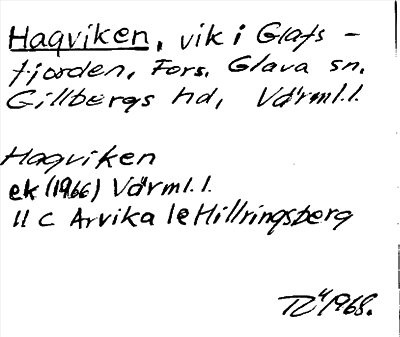 Hagviken, vik i Glafs-
fjorden, Fors. Glava sn,
Gillbergs hd, Värml.l.
Hagviken
ek (1966) Värml.l.
11 C Arvika 1e Hillringsberg
1968.